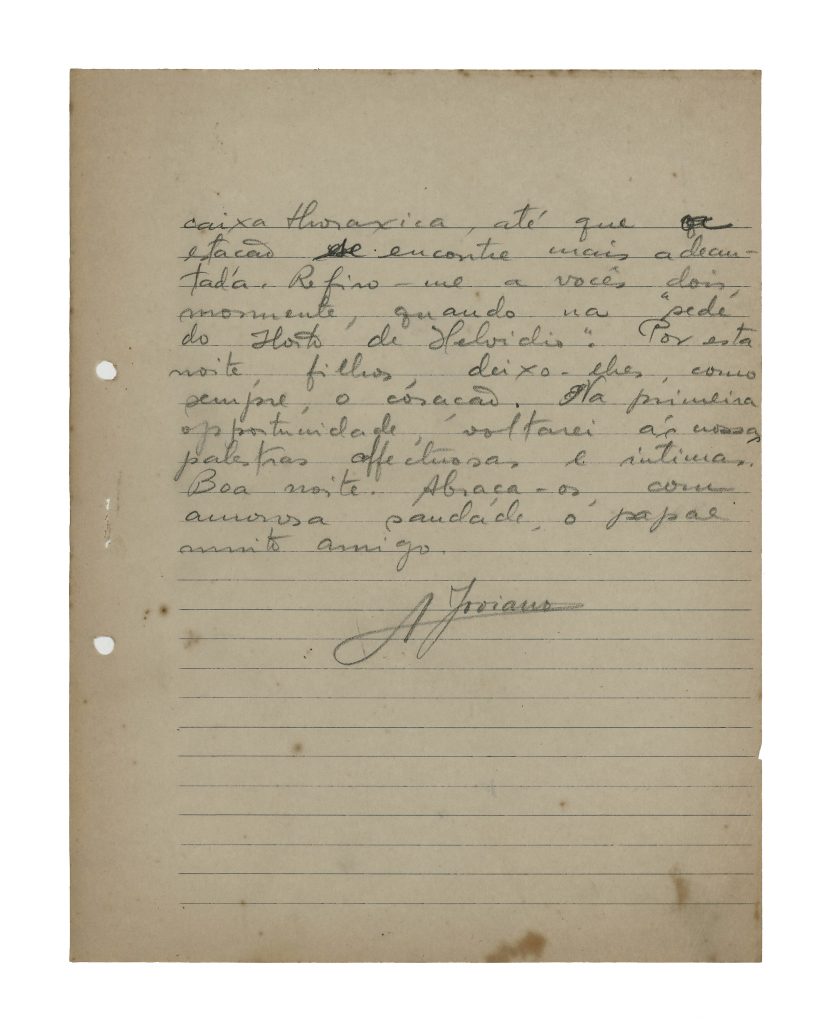 caixa thoraxica, até que a
estacão se encontre mais adean-
tada. Refiro-me a vocês dois,
mormente, quando na "séde
do Horto de Helvidio". Por esta
noite, filhos, deixo-lhes, como
sempre, o coracão. Na primeira
opportunidade, voltarei ás nossas
palestras affectuosas e intimas.
Boa noite. Abraca-os, com
amorosa saudade, o papae
muito amigo.
A Joviano